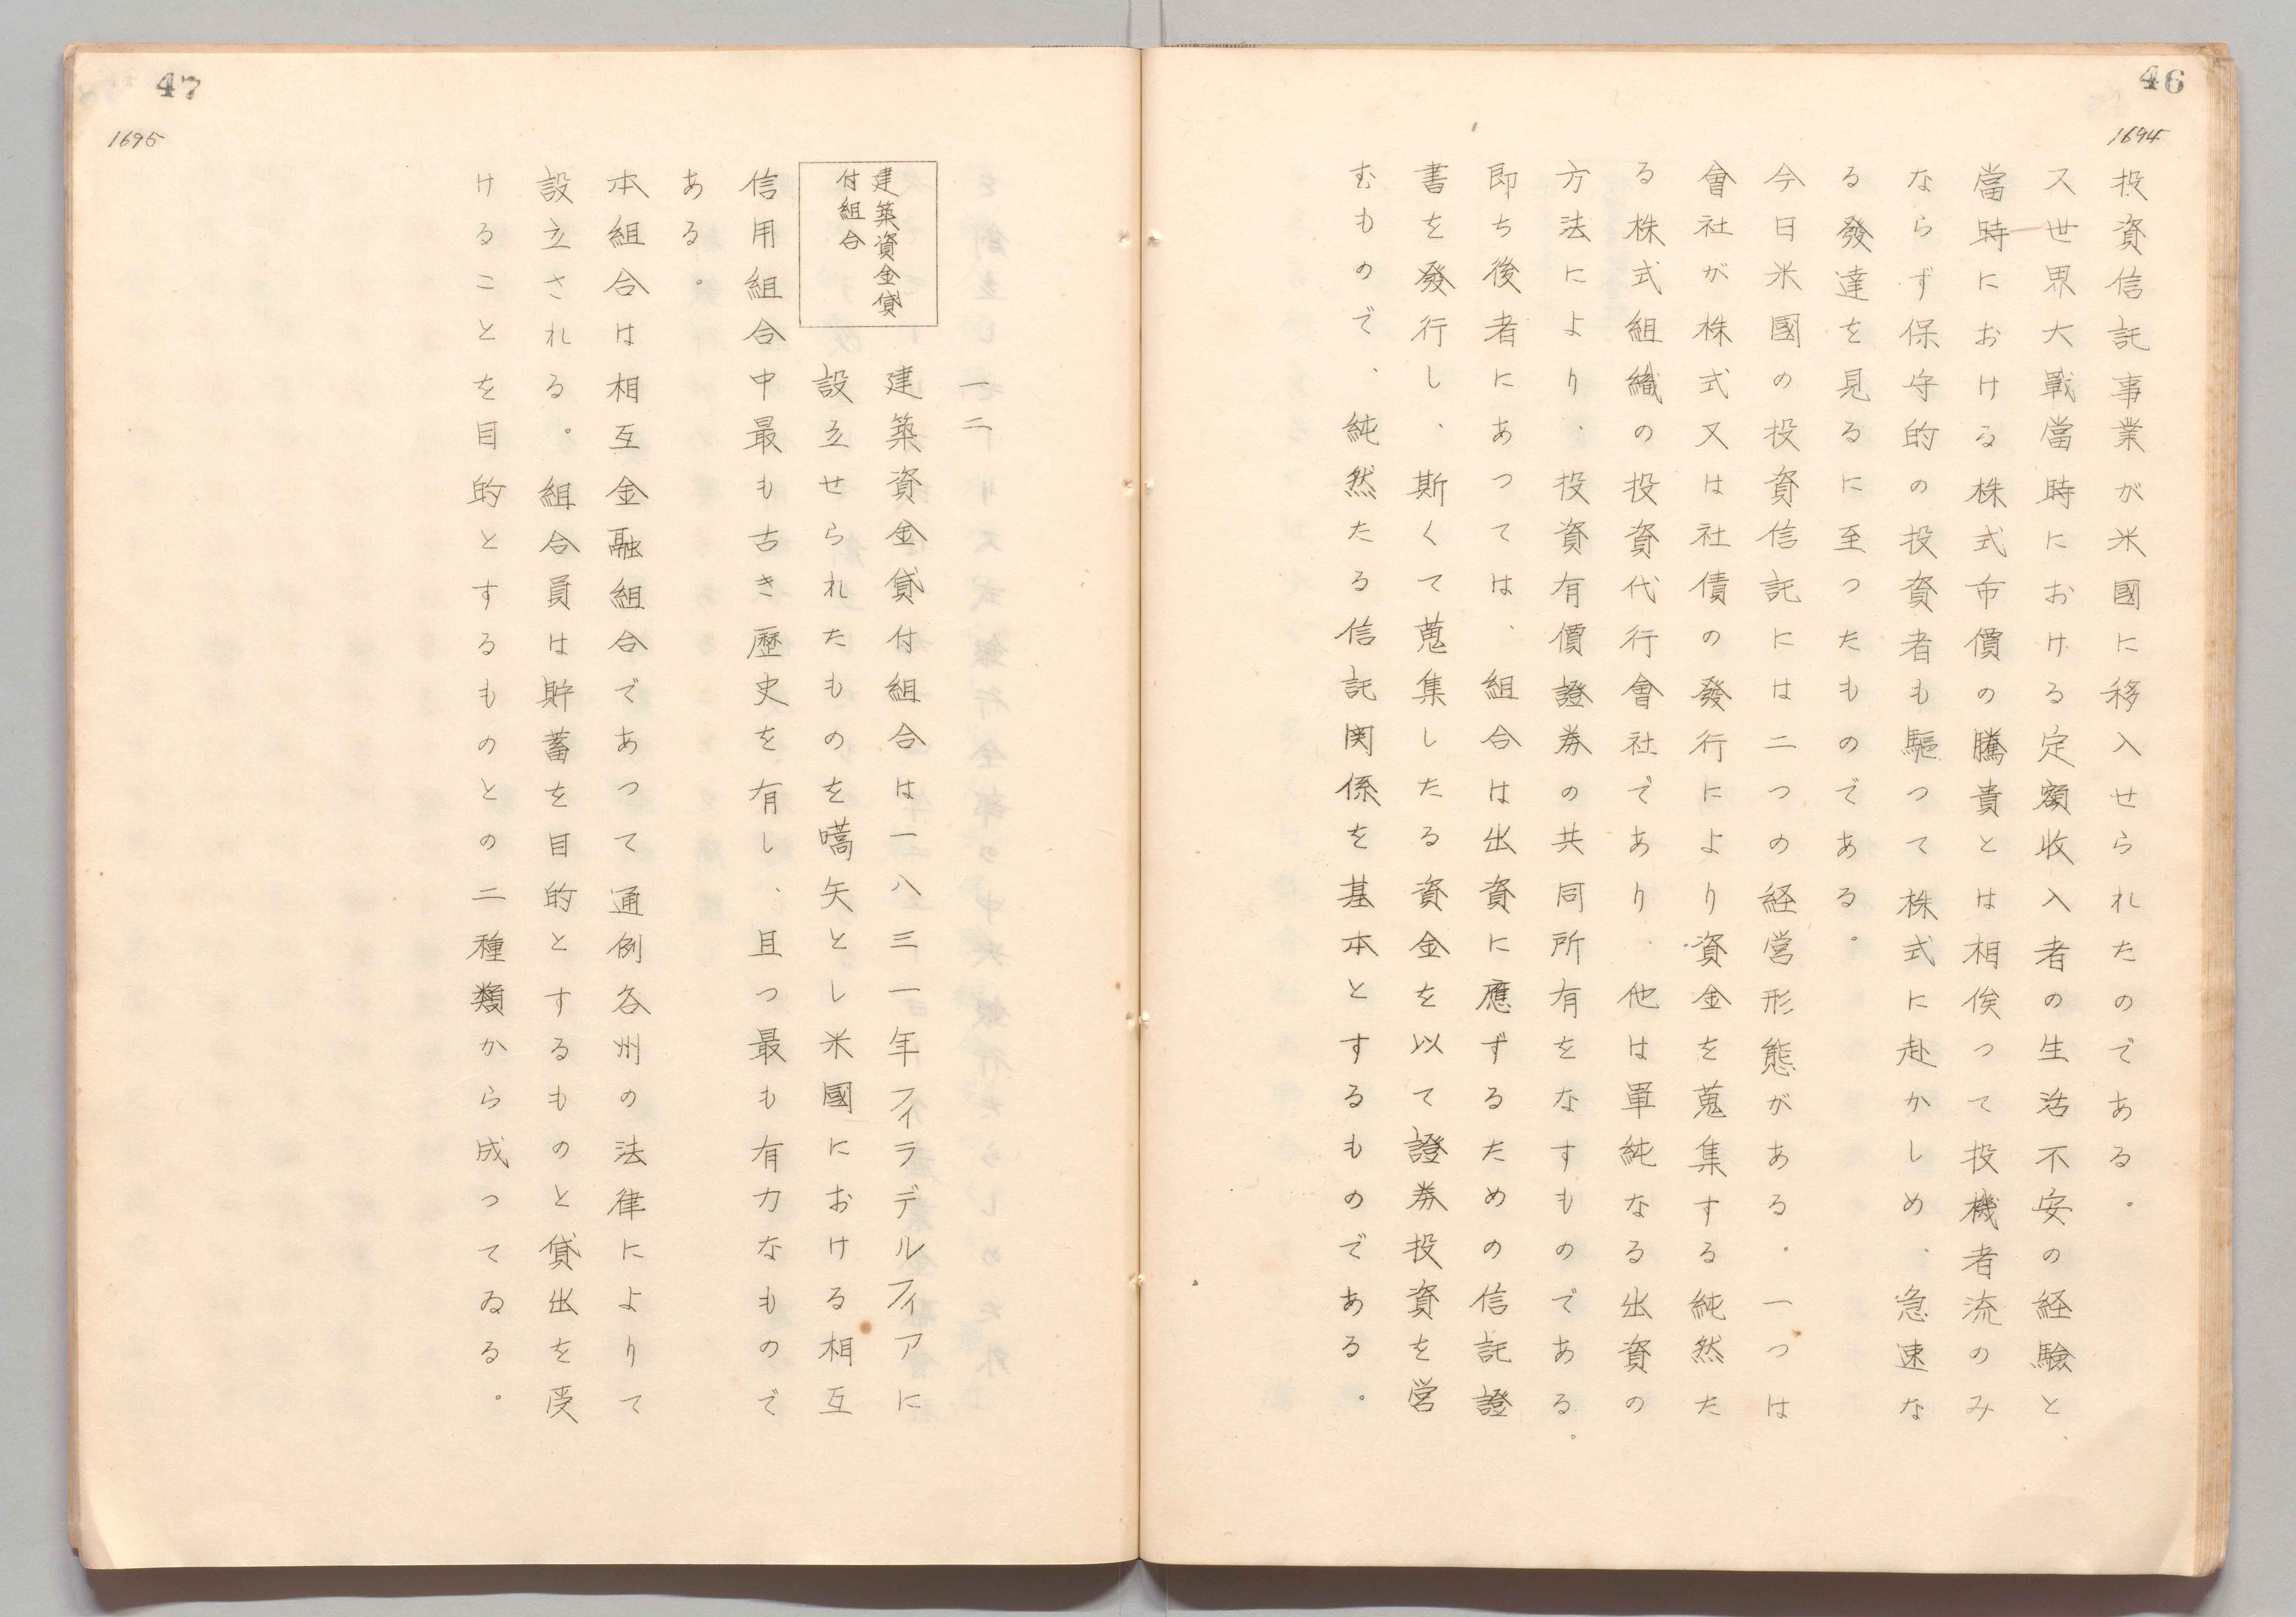 46
1694
投資信託事業が米國に移入せられたのである。
又世界大戰當時における定額收入者の生活不安の経驗と、
當時における株式市價の騰貴とは相俟つて投機者流のみ
ならず保守的の投資者も驅つて株式に赴かしめ、急速な
る發達を見るに至つたものである。
今日米國の投資信託には二つの経営形態がある。一つは
會社が株式又は社債の發行により資金を蒐集する純然た
る株式組織の投資代行會社であり、他は單純なる出資の
方法により、投資有價證券の共同所有をなすものである。
即ち後者にあつては、組合は出資に應ずるための信託證
書を發行し、斯くて蒐集したる資金を以て證券投資を営
むもので、純然たる信託関係を基本とするものである。
47
1695
一二
建築資金貸
付組合
建築資金貸付組合は一八三一年フィラデルフィアに
設立せられたものを嚆矢とし米國における相互
信用組合中最も古き歷史を有し、且つ最も有力なもので
ある。
本組合は相互金融組合であつて通例各州の法律によりて
設立される。組合員は貯蓄を目的とするものと貸出を受
けることを目的とするものとの二種類から成つてゐる。